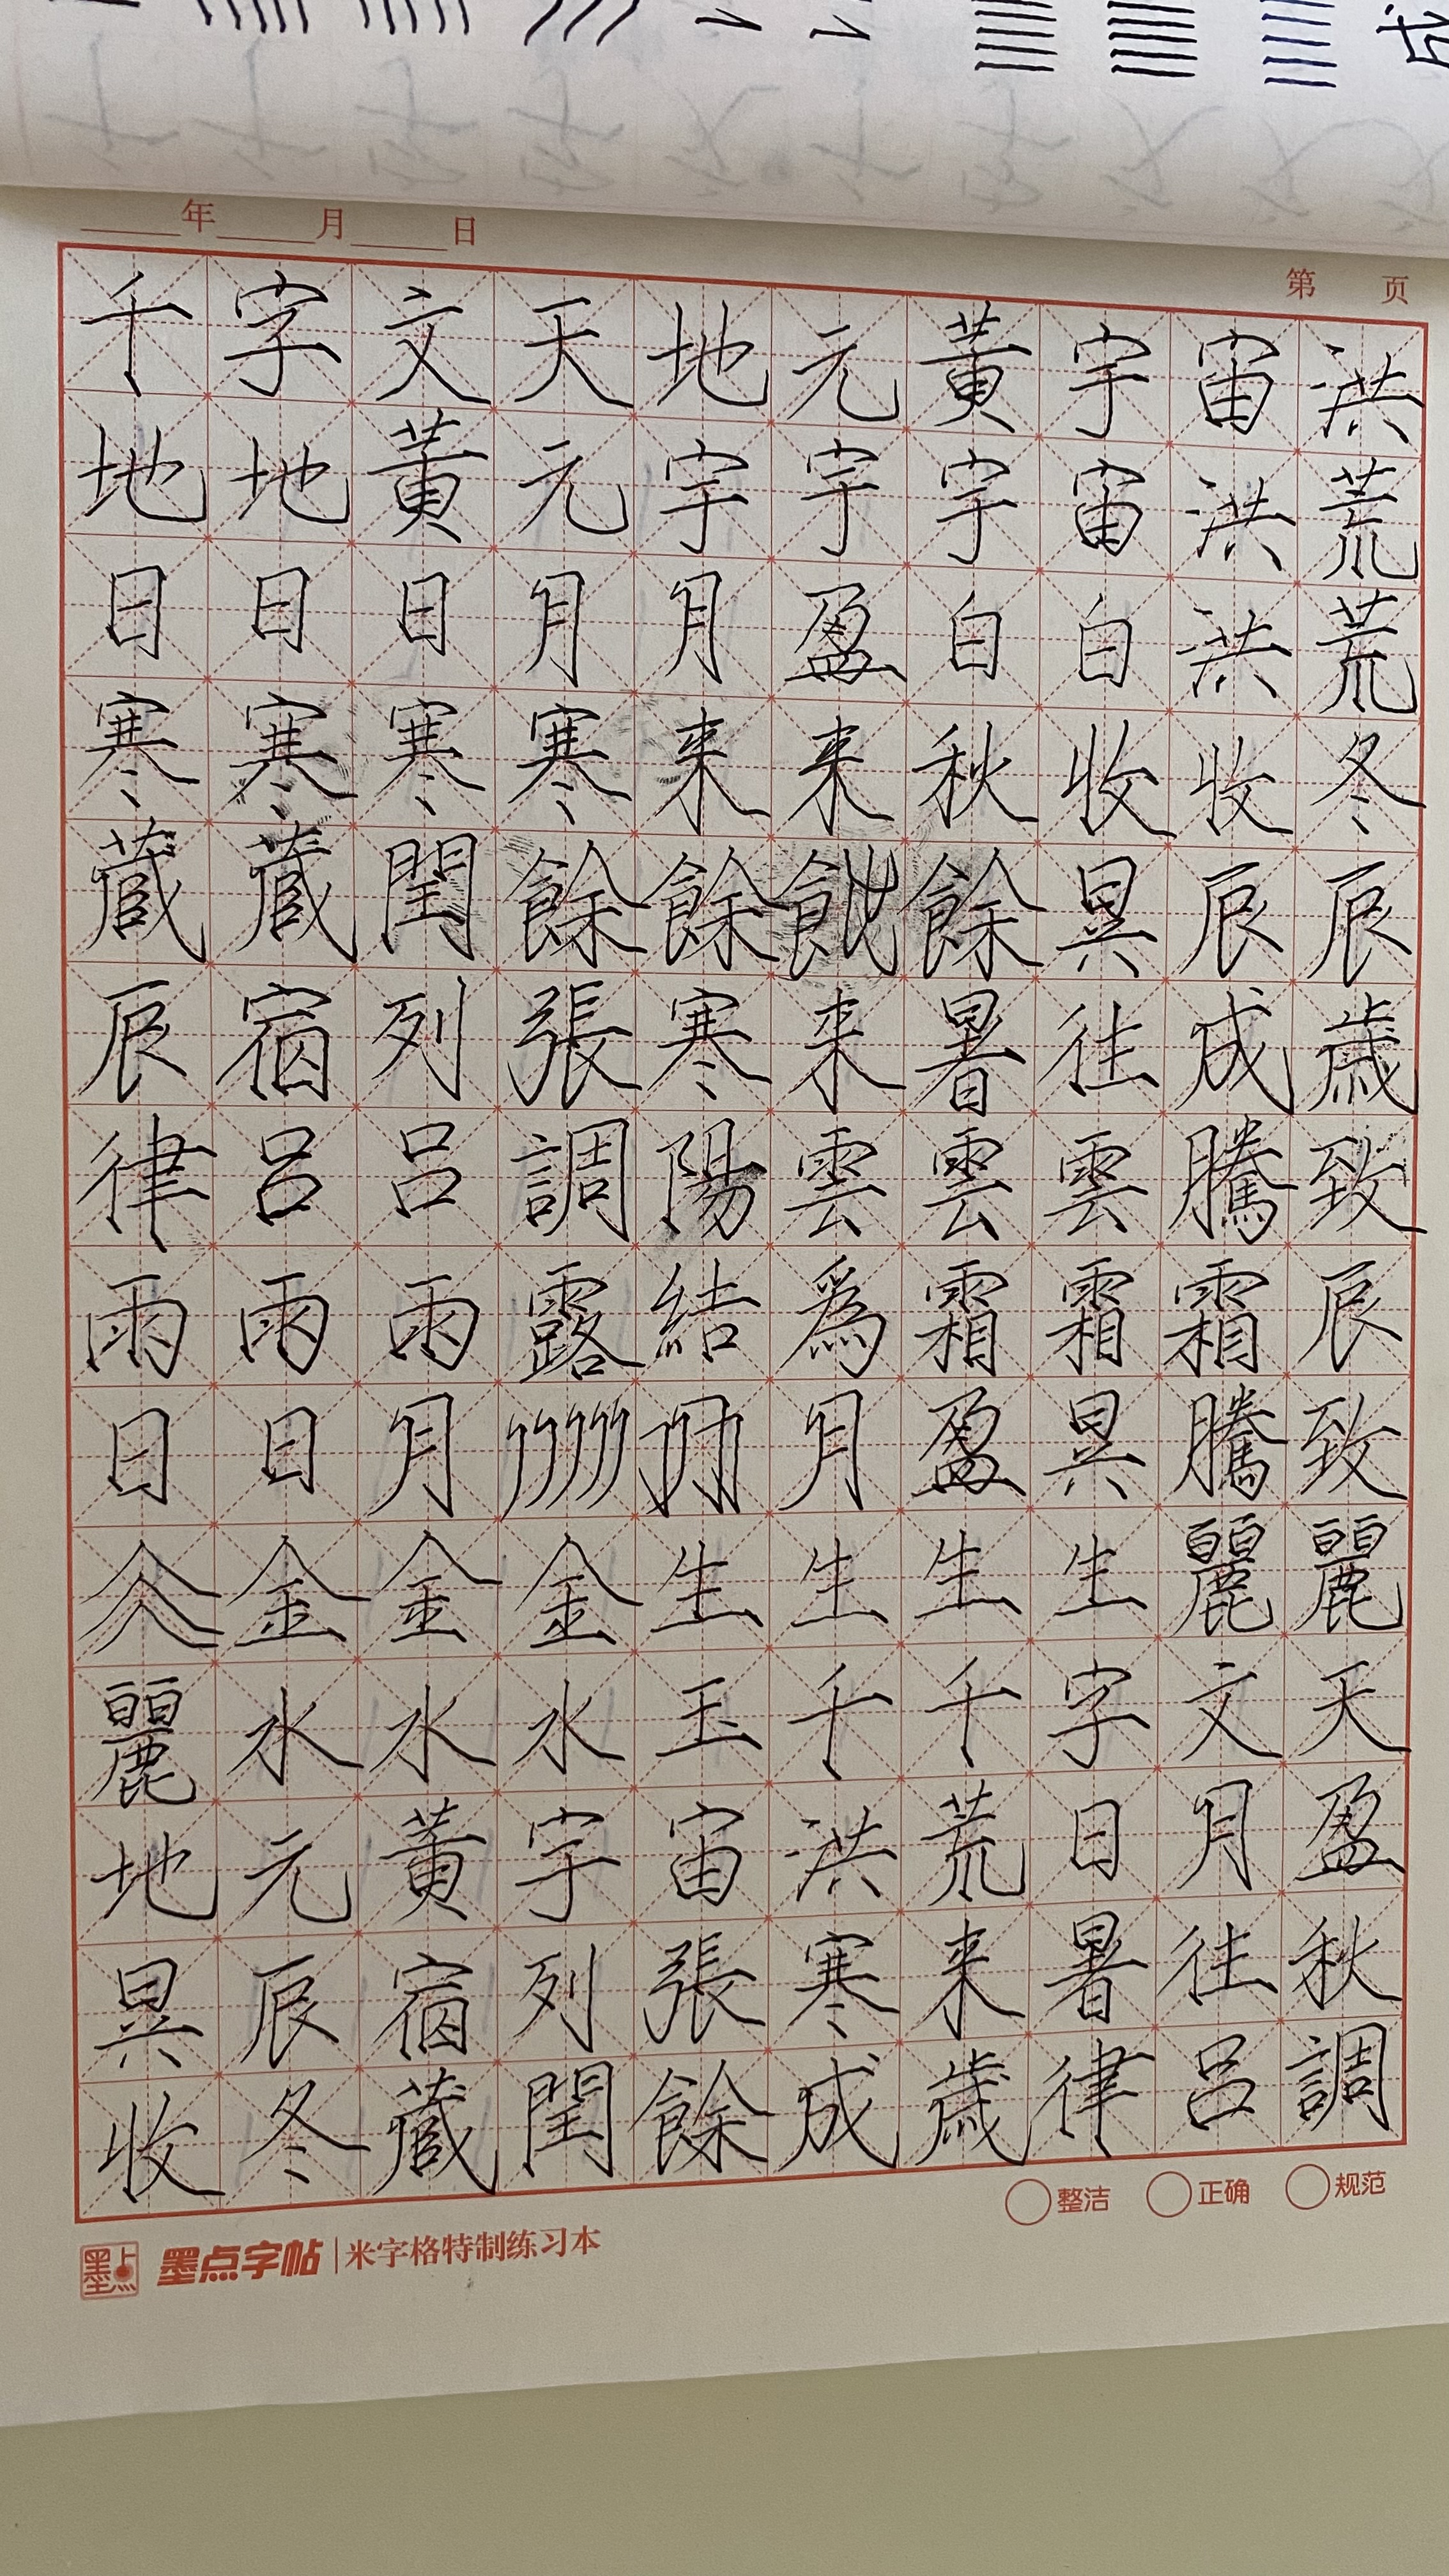 年 月 日
第 页
千字文天地元黄宇宙洪
地地黄元宇宇宇宙洪荒
日日日月月盈白白洪荒
寒寒寒寒来来秋收收冬
蔵蔵閏餘餘餘昃辰辰
辰宿列張寒来暑往成歲
律呂呂調陽雲雲雲騰致
雨雨雨露結爲霜霜霜辰
日日月月盈昃騰致
金金金生生生生麗麗
麗水水水玉千千字文天
地元黄宇宙洪荒日月盈
昃辰宿列張寒来暑往秋
收冬蔵閏餘成歲律呂調
整洁 正确 规范
墨点 墨点字帖 米字格特制练习本